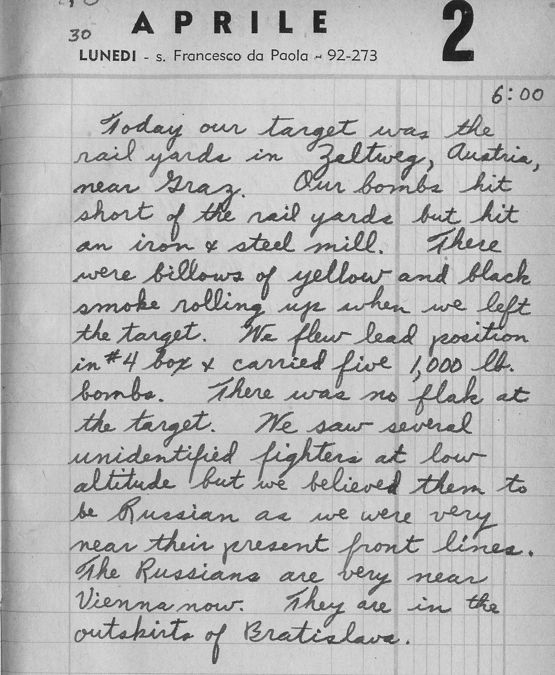 30
APRILE 2
LUNEDI - s. Francesco da Paola ~ 92-273
6:00
Today our target was the
rail yards in Zeltweg, Austria,
near Graz. Our bombs hit
short of the rail yards but hit
an iron & steel mill. There
were billows of yellow and black
smoke rolling up when we left
the target. We flew lead position
in #4 box & carried five 1,000 lb.
bombs. There was no flak at
the target. We saw several
unidentified fighters at low
altitude but we believed them to
be Russian as we were very
near their present front lines.
The Russians are very near
Vienna now. They are in the
outskirts of Bratislava.